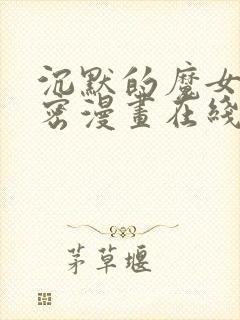 沉默的魔女
密漫畫在綫
茅草堰